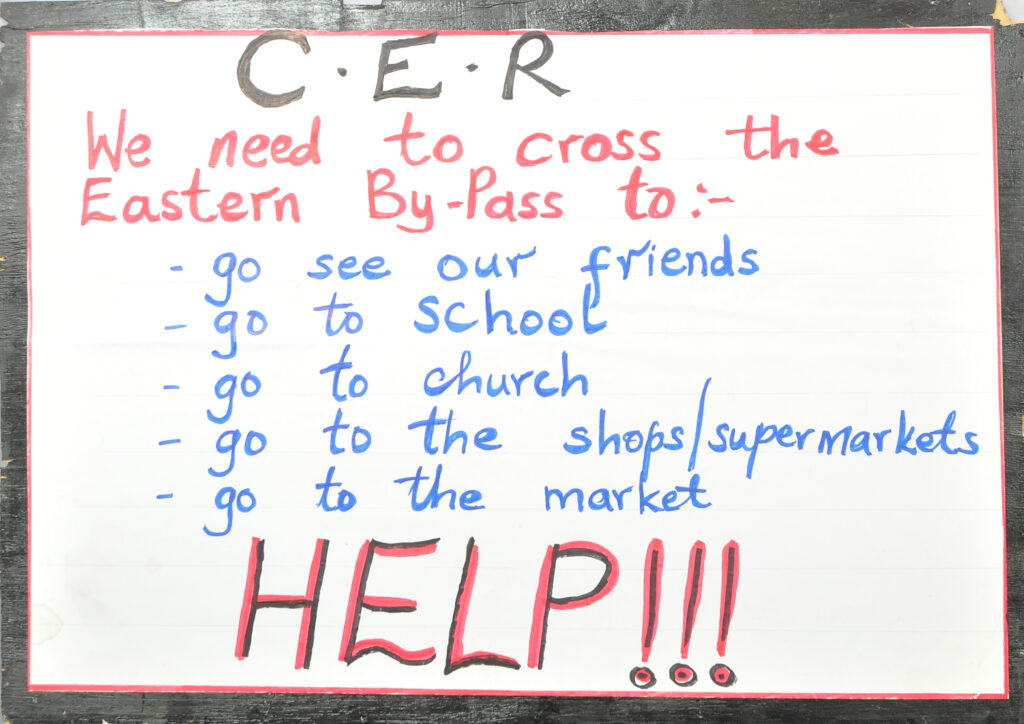 C.E.R
We need to cross the
Eastern By-Pass to:-
- go see our friends
- go to school
- go to church
- go to the shops/supermarkets
- go to the market
HELP!!!